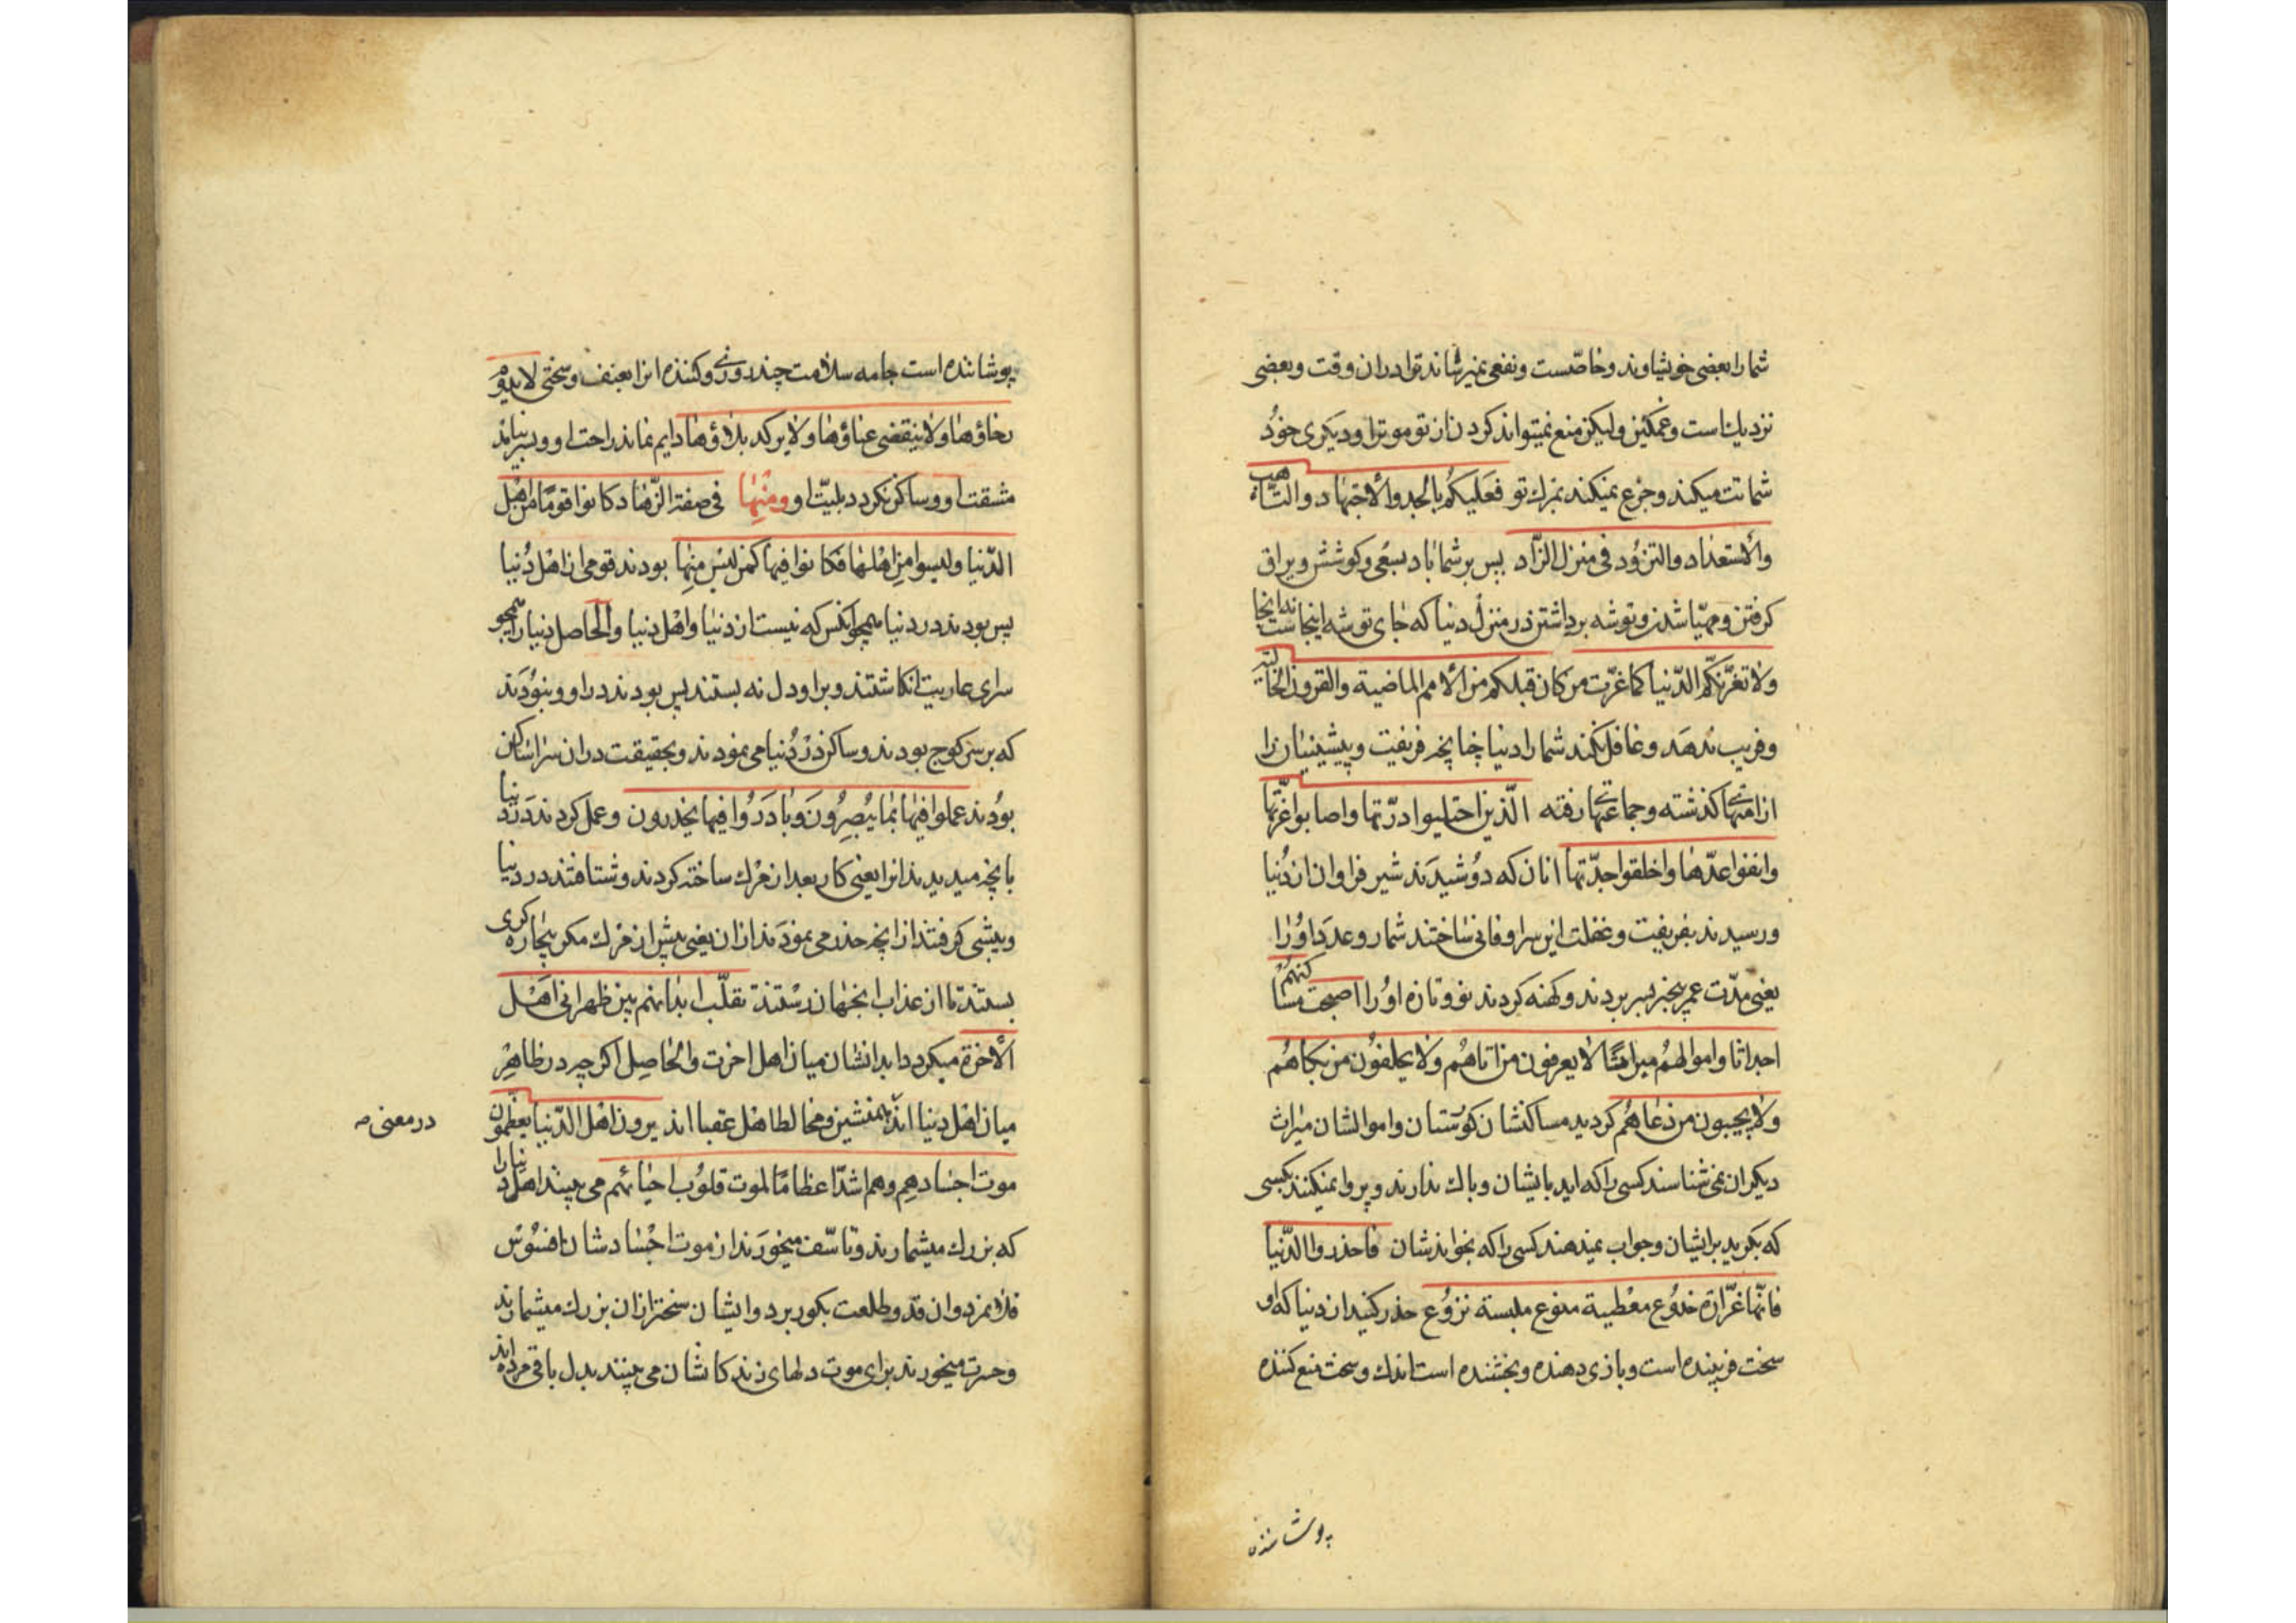 شما را بعضی خویشاوند و خاصّست و نفعی نمیرساند ترا در ان وقت و بعضی
نزدیک است و غمکین و لیکن منع نمیتواند کردن از تو موترا و دیکری خود
شماتت میکند و جزع نمیکند بمرک تو فعلیکم بالجد والاجتهاد والتاهب
والاستعداد والتزوّد فی منزل الزّاد پس بر شما باد بسعی و کوشش و یراق
کرفتن و مهیّا شدن و توشه برداشتن در منزل دنیا که جای توشه اینجاست
ولا تغرّنّکم الدّنیا کما غرّت من کان قبلکم من الامم الماضیة والقرون الخالیة
و فریب ندهد و غافل نکند شما را دنیا چنانچه فریفت و پیشینیان را
از امتهای کذشته و جماعتهای رفته الّذین احتلبوا درّتها واصابوا غرّتها
وافنوا عدّها واخلقوا جدّتها انان که دوشیدند شیر فراوان از دنیا
و رسیدند بفریفت و غفلت این سرا و فانی ساختند شمار و عدد او را
یعنی مدّت عمر بیخبر بسر بردند و کهنه کردند نو و تازه او را اصبحت مساکنهم
اجداثا واموالهم میراثا لا یعرفون من اتاهم ولا یحلفون من بکاهم
ولا یجیبون من دعاهم کردید مساکنشان کورستان و اموالشان میراث
دیکران نمیشناسند کسی را که اید بایشان و باک ندارند و پروا نمیکنند بکسی
که بکرید برایشان و جواب نمیدهند کسی را که بخواندشان فاحذروا الدّنیا
فانّها غرّارة خدوع معطیة منوع ملبسة نزوع حذر کنید از دنیا که او
سخت فریبنده است و بازی دهنده و بخشنده است اندک و سخت منع کننده
پوشانده
پوشانده است جامه سلامت چند روزی و کننده انرا بعنف و سختی لا یدوم
رخاؤها ولا ینقضی عناؤها ولا یرکد بلاؤها دایم نماند راحت او و بسر نیاید
مشقت او و ساکن نکردد بلیّت او ومنها فی صفة الزّهاد کانوا قوما من اهل
الدّنیا ولیسوا من اهلها فکانوا فیها کمن لیس منها بودند قومی از اهل دنیا
پس بودند در دنیا همچو انکس که نیست از دنیا و اهل دنیا و الحاصل دنیا را همچو
سرای عاریت انکاشتند و بر او دل نه بستند پس بودند در او و نبودند
که بر سر کوچ بودند و ساکن در دنیا می نمودند و بحقیقت در ان سرا ساکن
بودند عملوا فیها بما یبصرون وبادروا فیها یحذرون و عمل کردند در دنیا
بانچه میدیدند انرا یعنی کار بعد از مرک ساخته کردند و شتافتند در دنیا
و پیشی کرفتند از انچه حذر می نمودند از ان یعنی پیش از مرک مکر بچاره کری
بستند تا از عذاب انجهان رستند تقلّب ابدانهم بین ظهرانی اهل
الاخرة میکردد ابدانشان میان اهل اخرت و الحاصل اکرچه در ظاهر
میان اهل دنیا اند همنشین و مخالط اهل عقبا اند یرون اهل الدّنیا یعظّمون
در معنی
موت اجسادهم وهم اشدّ اعظاما لموت قلوب احیائهم می بینند اهل دنیا را
که بزرک میشمارند و تاسّف میخورند از موت اجسادشان افسوس
فلان مرد و ان قد و طلعت بکور برد و ایشان سختر از ان بزرک میشمارند
و حسرت میخورند برای موت دلهای زندکانشان می بینند بدل باقی مرده اند